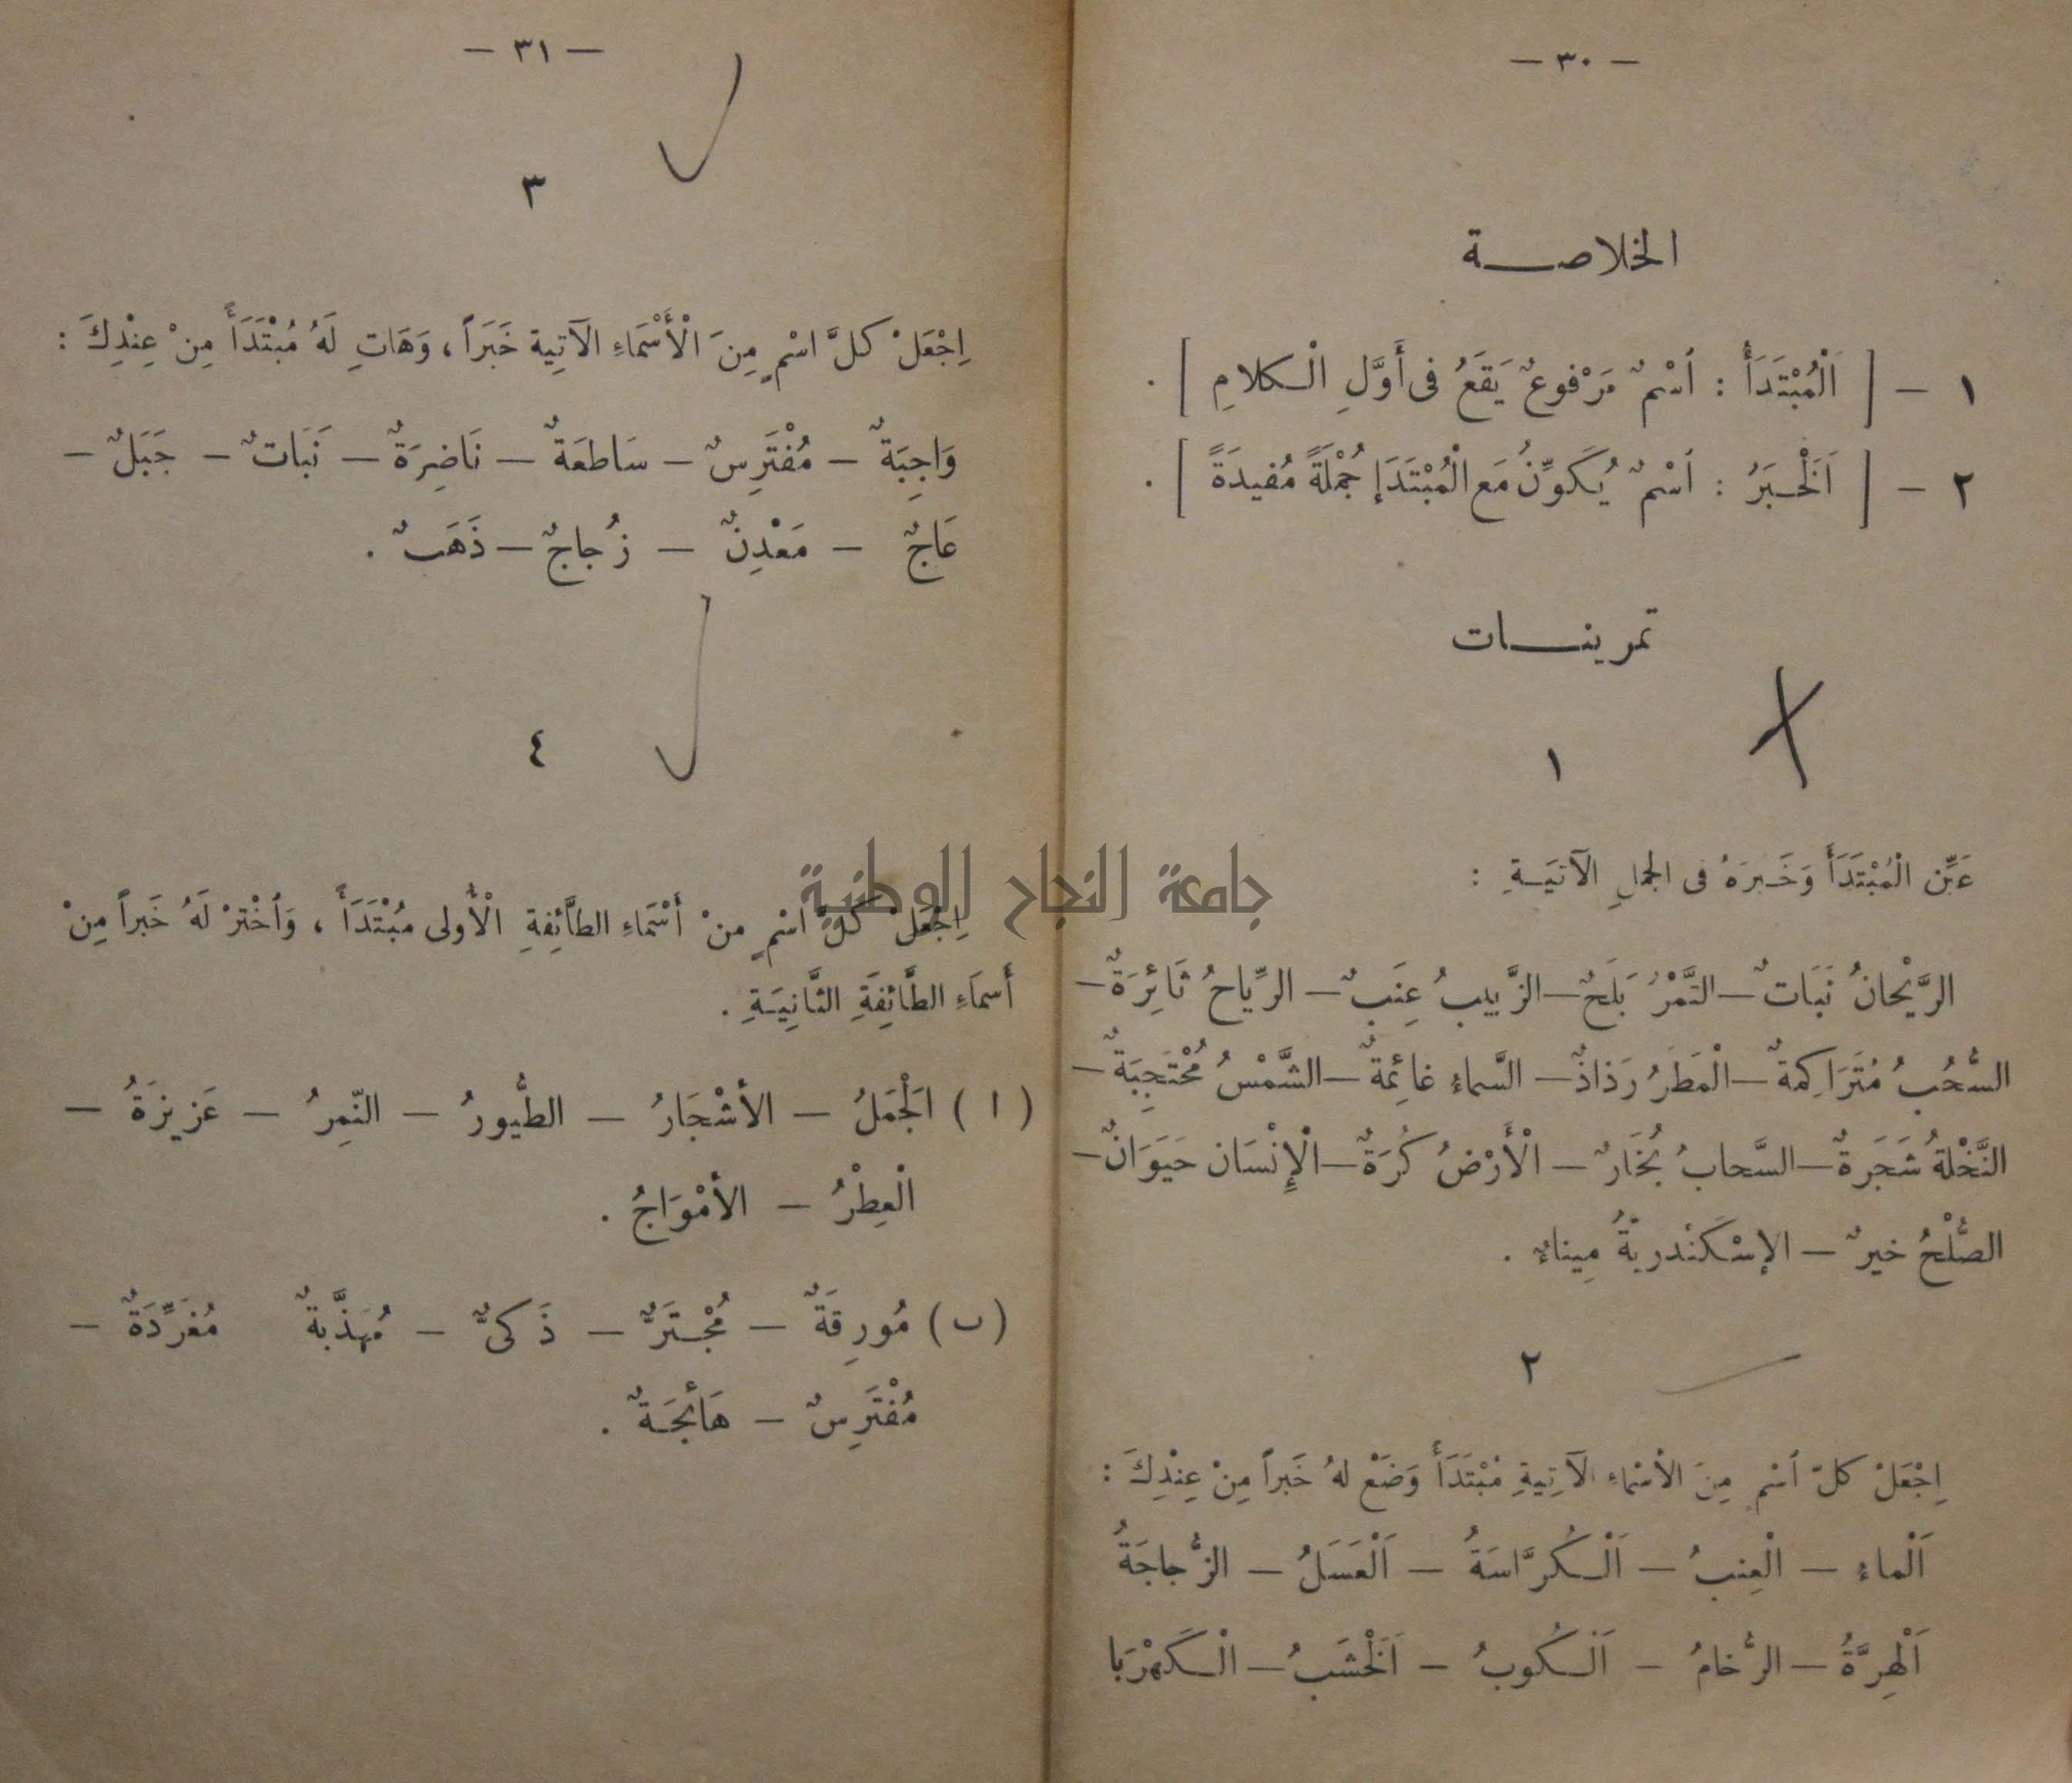 — ٣٠ —
الخلاصـــة
١ — [ اَلْمُبْتَدَأُ : اَسْمٌ مَرْفوعٌ يَقَعُ فى أَوَّلِ الْـكلامِ ] .
٢ — [ اَلْخَـبَرُ : اَسْمٌ يُكَوِّنُ مَع الْمُبْتَدَإِ جُمْلَةً مُفيدَةً ] .
تمرينـــات
١
عَيِّن الْمُبْتَدَأَ وَخَـبَرَهُ فى الجملِ الآتيَـةِ :
الرَّيْحانُ نَبَاتٌ — التَّمْرُ بَلَحٌ — الزَّبيبُ عِنَبٌ — الرِّياحُ ثَائِرَةٌ —
السُّحُبُ مُتَرَاكِمةٌ — الْمَطَرُ رَذاذٌ — السَّماءُ غائِمَةٌ — الشَّمْسُ مُحْتَجِبَةٌ —
النَّخْلةُ شَجَرةٌ — السَّحابُ بُخَارٌ — الْأَرْضُ كُرَةٌ — الْإِنْسَان حَيَوَانٌ —
الصُّلْحُ خيرٌ — الإسْكَنْدريةُ مِيناءٌ .
٢
اِجْعَلْ كلّ اَسْمٍ مِنَ الأسْماءِ الآتِيةِ مُبْتَدَأً وَضَعْ لهُ خَبراً مِنْ عِنْدِكَ :
اَلْماءُ — الْعِنبُ — اَلْـكُرَّاسَةُ — اَلْعَسَلُ — الزُّجاجَةُ
اَلْهِرَّةُ — الرُّخامُ — اَلْـكُوبُ — اَلْخَشَبُ — الْـكَهْرَبا
— ٣١ —
٣
اِجْعَلْ كلَّ اسْمٍ مِنَ الْأَسْمَاءِ الآتِيةِ خَبَراً ، وَهَاتِ لَهُ مُبْتَدَأً مِنْ عِنْدِكَ :
وَاجِبَةٌ — مُفْتَرِسٌ — سَاطعَةٌ — نَاضِرَةٌ — نَبَاتٌ — جَبَلٌ —
عَاجٌ — مَعْدِنٌ — زُجاجٌ — ذَهَبٌ .
٤
اِجْعَلْ كلَّ اسْمٍ منْ أَسْمَاءِ الطَّائِفةِ الْأُولى مُبْتَدَأً ، وَاَخْترْ لَهُ خَبراً مِنْ
أَسماَءِ الطَّائِفَةِ الثَّانِيَـةِ .
( ا ) اَلْجَمَلُ — الأشْجَارُ — الطُّيورُ — النّمِرُ — عَزيزَةُ —
الْعِطْرُ — الأمْوَاجُ .
( ب ) مُورِقَةٌ — مُجْـتَرٌّ — ذَكىٌّ — مُهَذَّبةٌ مُغَرِّدَةٌ —
مُفْتَرِسٌ — هَائِجَـةٌ .
جامعة النجاح الوطنية